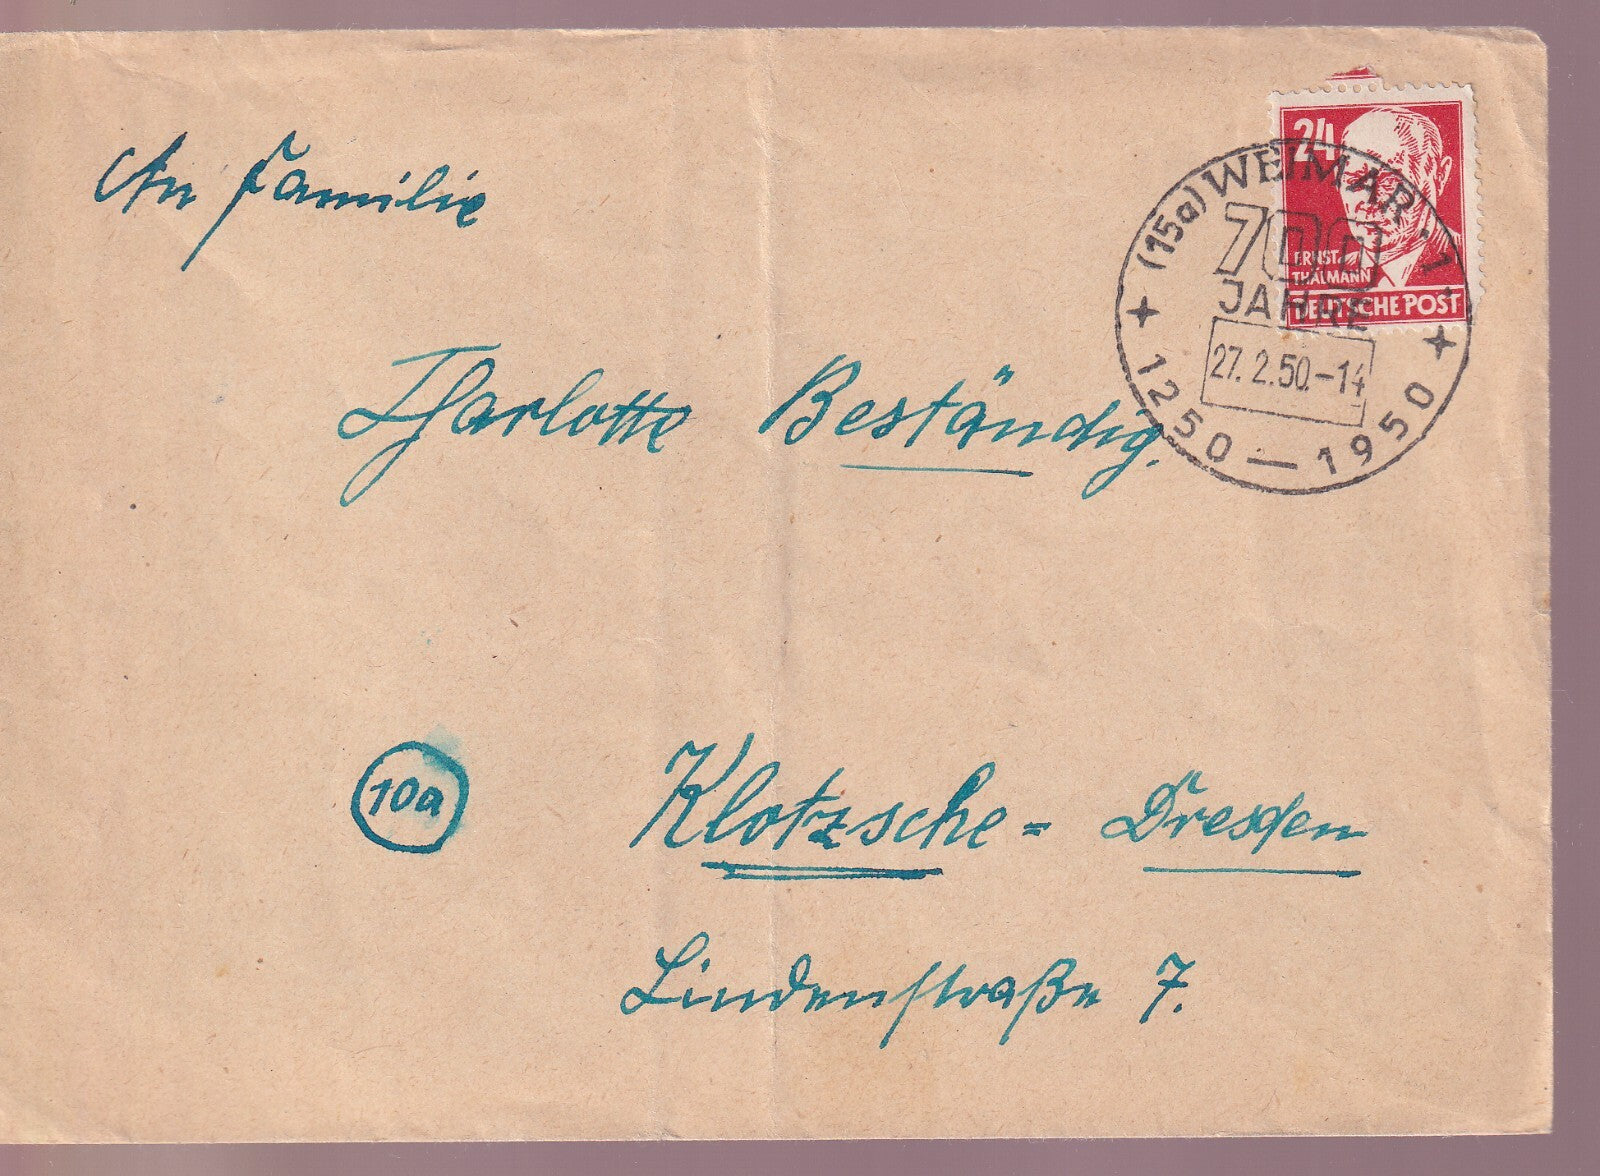 An Familie
24
ERNST
THÄLMANN
DEUTSCHE POST
(15a) WEIMAR · 1 ·
700
JAHRE
27.2.50.-14
1250 — 1950
Charlotte Beständig.
10a
Klotzsche = Dresden
Lindenstraße 7.